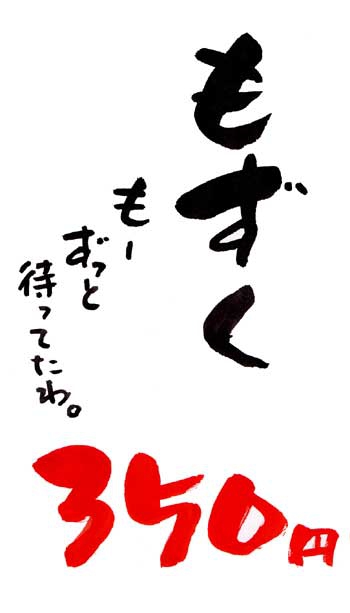 もずく
もー
ずっと
待ってたわ。
350円